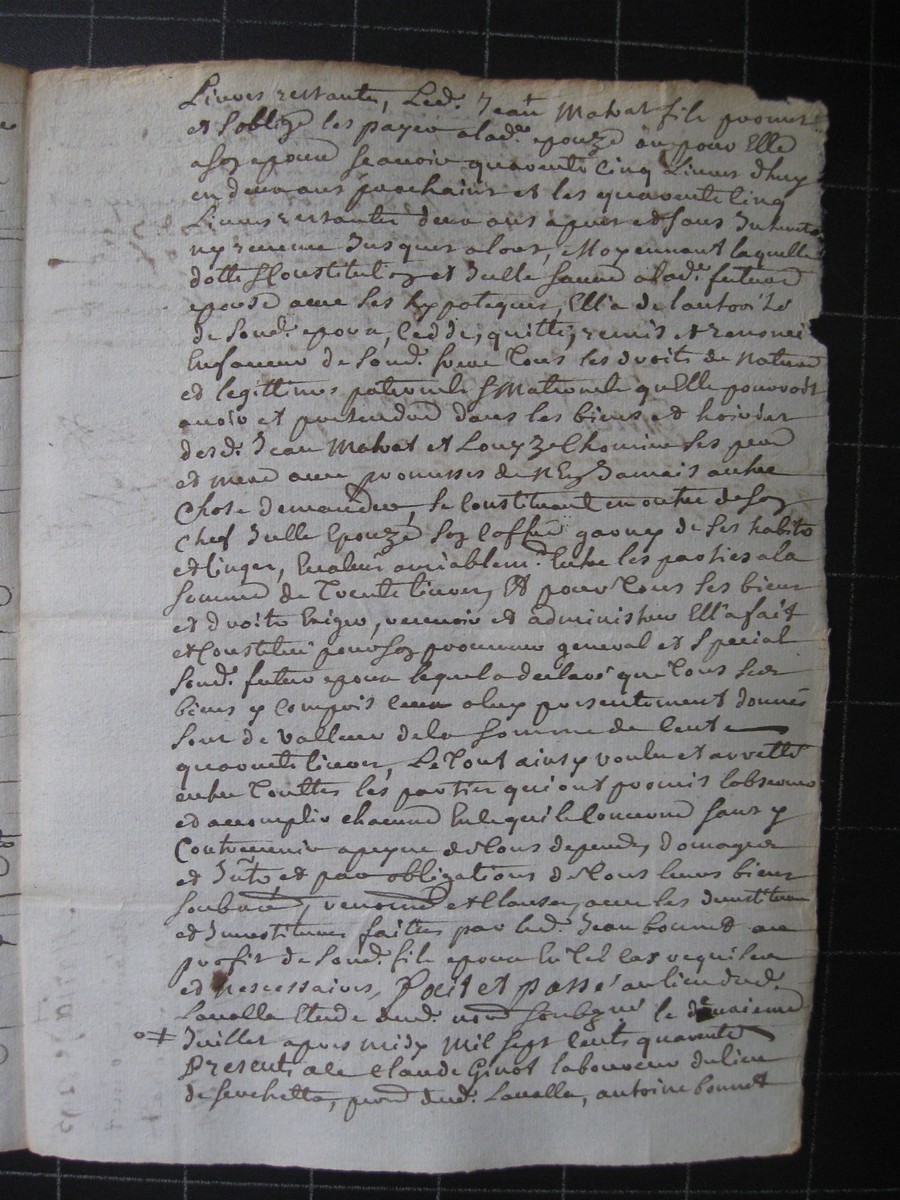 Livres restante, Led. Jean Mahat fils promet
et soblige les payer a lad. epouze ou pour Elle
a son epoux scavoir quarente cinq Livres dhuy
en deux ans prochains et les quarente cinq
Livres restante deux ans apres et sans Interets
ny renene Jusques alors, Moyennant laquelle
dotte Constitution et Icelle sauve a lad. future
epouse avec ses hypoteques, Ella de lautorité
de Sond. epoux, Cedde, quitte, remis et
En faveur de Sond. frere Tous les droits de Nature
et legittimes paternels Maternels quElle pouvoit
avoir et pretendre dans les biens et hoiries
desd. Jean Mahat et Louyze Chomine ses pere
et mere avec promesses de nEn Jamais autre
Chose demander, se Constituant en outre de son
Chef Icelle Epouze son Coffre garny de ses habits
et linges, Evalué amiablem. Entre les parties a la
somme de Trente livres, Et pour Tous ses biens
et droits Exiger, recevoir et administrer Ella fait
et Constitué pour son procureur general et special
Sond. futur epoux lequel a declaré que Tous ses
biens y compris Ceux a luy presentement donnés
sont de valleur de la somme de Cent
quarente livres, Le Tout ainsy voulu et arretté
entre Touttes les parties qui ont promis lobserver
et accomplir chacune En ce qui le Concerne sans y
Contrevenir a peyne de Tous depends, domages
et Jnts et par obligations de Tous leurs biens
et Clauses, avec les
et Investitures faittes par led. Jean bonnet au
profit de Sond. fils epoux En Tel cas requises
et Nescessaires, fait et passé au lieu dud.
Lavalla Etude dud. nore soubsigné le
Juillet apres midy Mil sept Cents quarente
Presents a ce Claude Ginot laboureur du lieu
de Seuchetta, parre dud. Lavalla, antoine bonnet